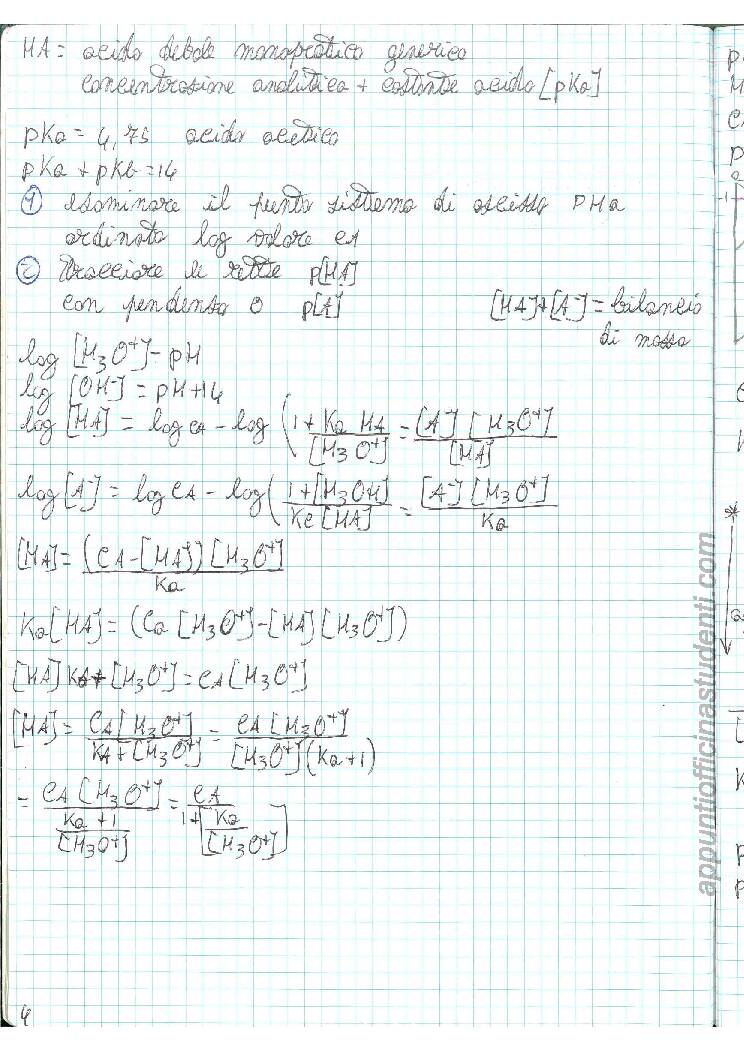 HA = acido debole monoprotico generico
concentrazione analitica + costante acido [pKa]
pKa = 4,75 acido acetico
pKa + pKb = 14
① esaminare il punto sistema di ascissa PHa
ordinata log valore cA
② tracciare le rette p[HA]
con pendenza 0 p[A]
[HA]+[A⁻] = bilancio
di massa
log [H3O+] = pH
log [OH⁻] = pH + 14
log [HA] = log cA - log ( 1 + Ka HA / [H3O+] = [A⁻] [H3O+] / [HA]
log [A⁻] = log cA - log ( 1 + [H3OH] / Ke [HA] = [A⁻] [H3O+] / Ka
[HA] = (cA - [HA]) [H3O+] / Ka
Ka [HA] = (Ca [H3O+] - [HA] [H3O+])
[HA] KA + [H3O+] = cA [H3O+]
[HA] = CA [H3O+] / KA + [H3O+] = cA [H3O+] / [H3O+] (Ka + 1)
= cA [H3O+] / Ka + 1 / [H3O+] = cA / 1 + [Ka / [H3O+]]
4
appuntiofficinastudenti.com